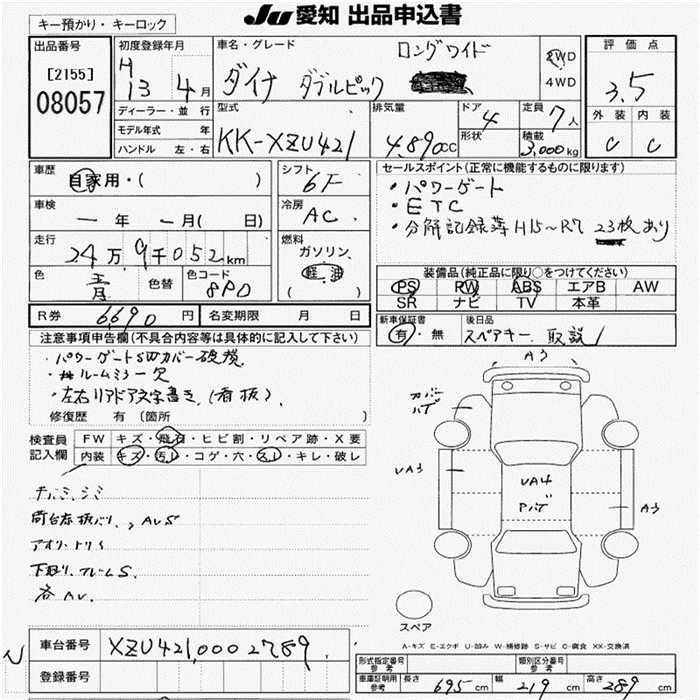 JU 愛知 出品申込書
キー預かり・キーロック
出品番号
[2155]
08057
初度登録年月
H
13 4月
ディーラー・並行
モデル年式 年
ハンドル 左・右
車名・グレード
ロングワイド
ダイナ ダブルピック
2WD
4WD
評価点
3.5
外装 内装
C C
型式
KK-XZU421
排気量
4,890cc
ドア
4
形状
定員
7人
積載
3,000kg
車歴
自家用・( )
車検
― 年 ― 月( 日)
走行
24万9千052km
色
青
色替
色コード
8P0
シフト
6F
冷房
AC
燃料
ガソリン
軽油
( )
セールスポイント(正常に機能するものに限ります)
・パワーゲート
・ETC
・分解記録簿H15~R7 23枚あり
装備品(純正品に限り○をつけてください)
PS PW ABS エアB AW
SR ナビ TV 本革
R券 6690円 名変期限 月 日
新車保証書
有・無
後日品
スペアキー 取説1
注意事項申告欄(不具合内容等は具体的に記入して下さい)
・パワーゲートS凹カバー破損
ルームミラー欠
・左右リアドア文字書き(看板)
修復歴 有 [箇所 ]
検査員
記入欄
FW キズ・飛石・ヒビ割・リペア跡・X要
内装 キズ・汚レ・コゲ・穴・スレ・キレ・破レ
荷台赤板バリ、AUS
アオリ・トリS
下回り、フレームS
各AU
A3
カバー
ハゲ
UA3
UA4
Pハゲ
A3
スペア
A-キズ E-エクボ U-凹み W-補修跡 S-サビ C-腐食 XX-交換済
車台番号 XZU421,0002789
登録番号
型式指定番号
参考
類別区分番号
参考
車庫証明用
参考
長さ 695cm 幅 219cm 高さ 289cm